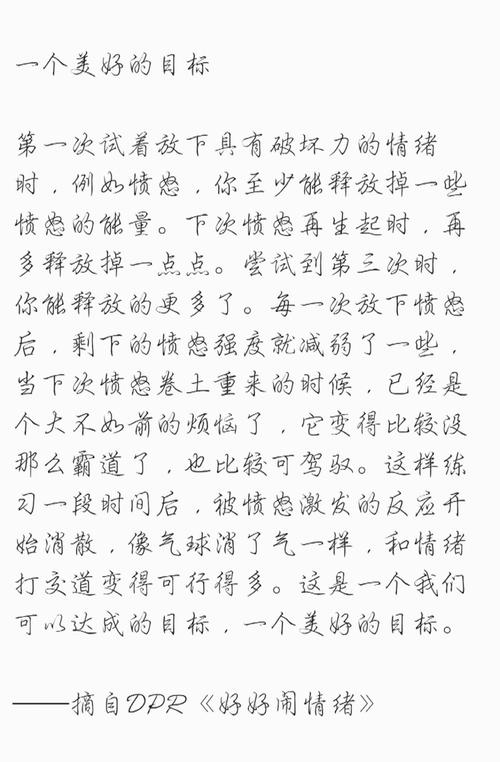 一个美好的目标
第一次试着放下具有破坏力的情绪
时，例如愤怒，你至少能释放掉一些
愤怒的能量。下次愤怒再生起时，再
多释放掉一点点。尝试到第三次时，
你能释放的更多了。每一次放下愤怒
后，剩下的愤怒强度就减弱了一些，
当下次愤怒卷土重来的时候，已经是
个大不如前的烦恼了，它变得比较没
那么霸道了，也比较可驾驭。这样练
习一段时间后，被愤怒激发的反应开
始消散，像气球消了气一样，和情绪
打交道变得可行得多。这是一个我们
可以达成的目标，一个美好的目标。
——摘自DPR《好好闹情绪》